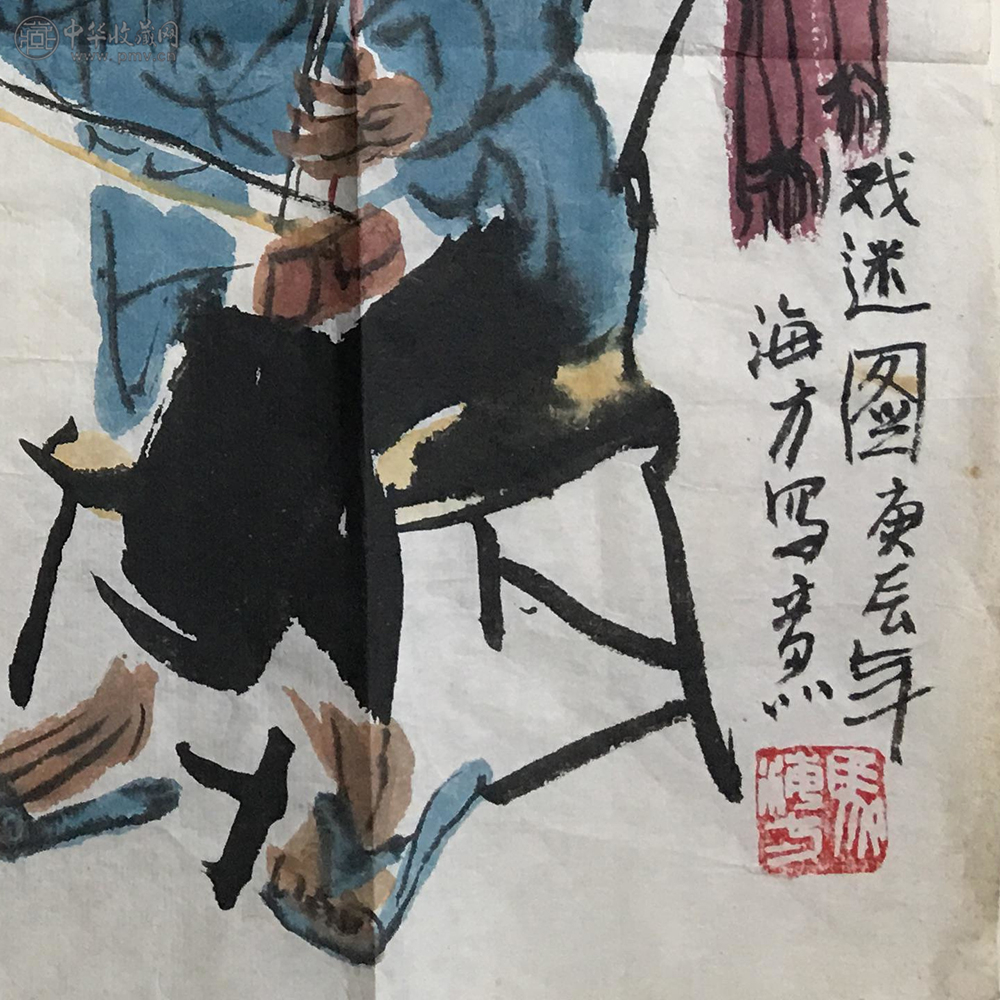 中华收藏网
戏迷图庚辰年
海方写意
馬海方